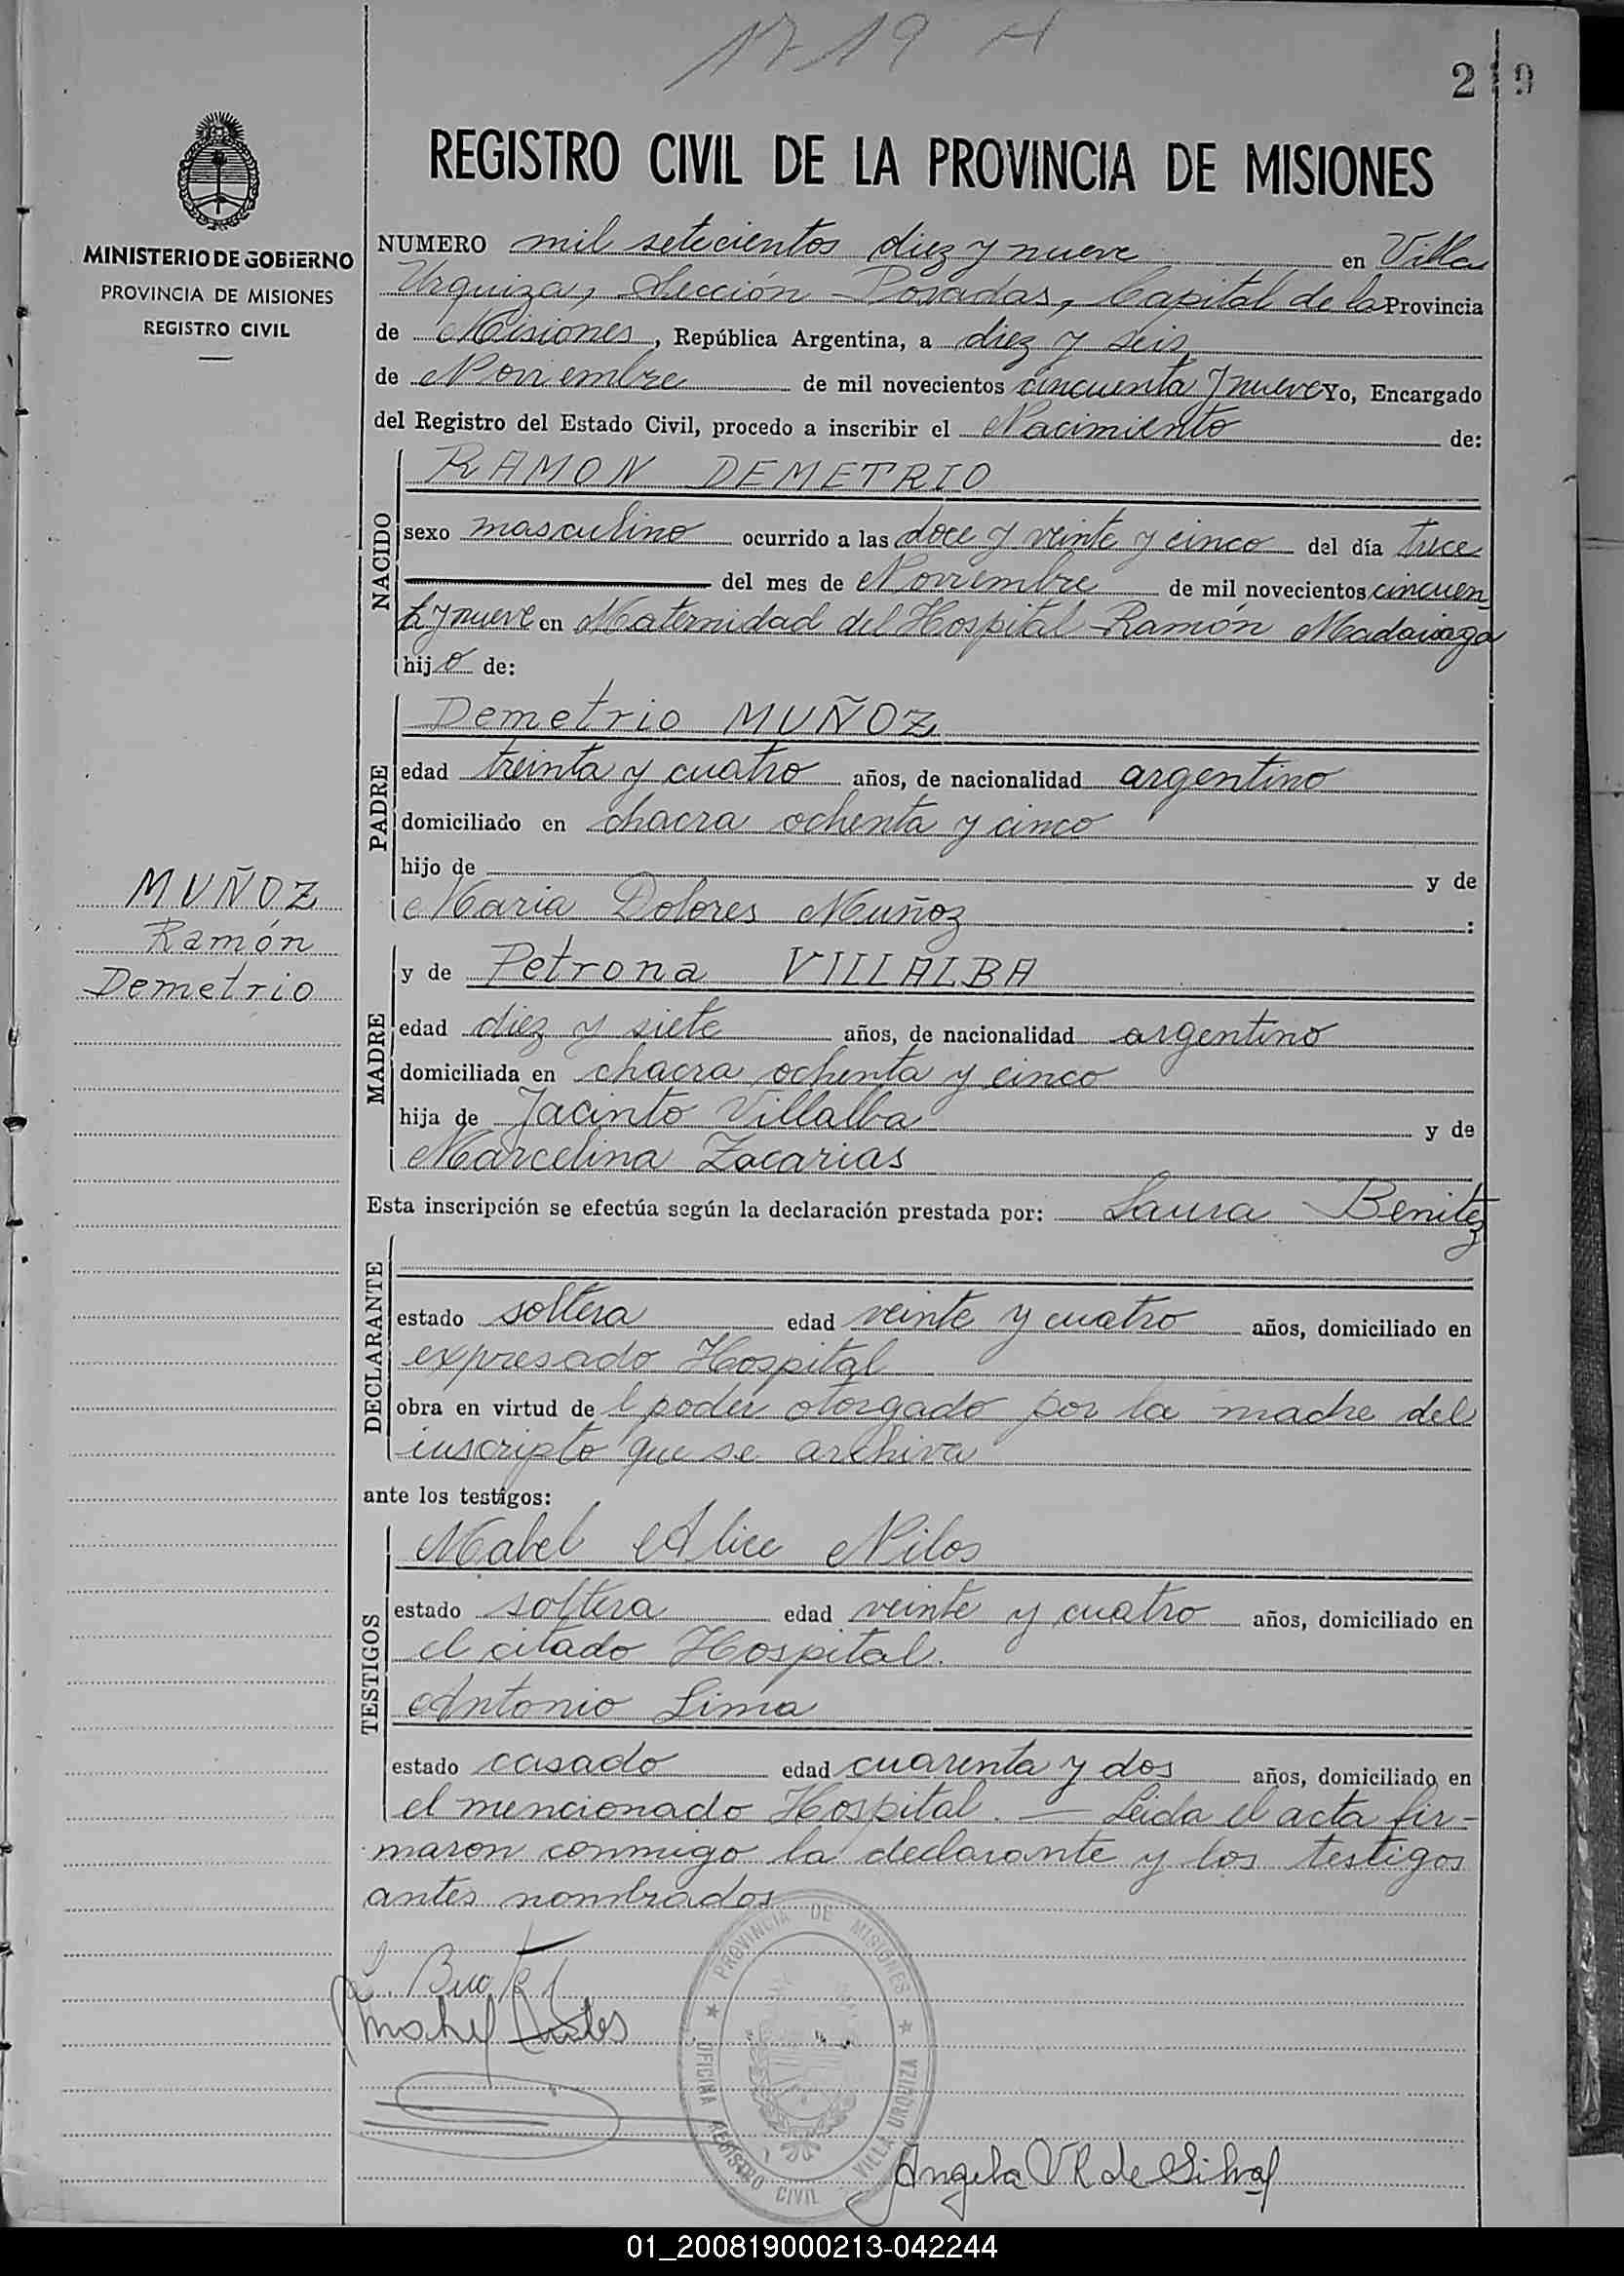 1719 H
2 9
REGISTRO CIVIL DE LA PROVINCIA DE MISIONES
MINISTERIO DE GOBIERNO
PROVINCIA DE MISIONES
REGISTRO CIVIL
NUMERO mil setecientos diez y nueve en Villa
Urquiza, Sección Posadas, Capital de la Provincia
de Misiones, República Argentina, a diez y seis
de Noviembre de mil novecientos cincuenta y nueve Yo, Encargado
del Registro del Estado Civil, procedo a inscribir el Nacimiento de:
NACIDO
RAMON DEMETRIO
sexo masculino ocurrido a las doce y veinte y cinco del día trece
del mes de Noviembre de mil novecientos cincuen
ta y nueve en Maternidad del Hospital Ramón Madariaga
hijo de:
PADRE
Demetrio MUÑOZ
edad treinta y cuatro años, de nacionalidad argentino
domiciliado en chacra ochenta y cinco
hijo de y de
Maria Dolores Muñoz :
MUÑOZ
Ramón
Demetrio
MADRE
y de Petrona VILLALBA
edad diez y siete años, de nacionalidad argentino
domiciliada en chacra ochenta y cinco
hija de Jacinto Villalba y de
Marcelina Zacarias
Esta inscripción se efectúa según la declaración prestada por: Laura Benitez
DECLARANTE
estado soltera edad veinte y cuatro años, domiciliado en
expresado Hospital
obra en virtud de l poder otorgado por la madre del
inscripto que se archiva
ante los testigos:
TESTIGOS
Mabel Alice Nilos
estado soltera edad veinte y cuatro años, domiciliado en
el citado Hospital.
Antonio Lima
estado casado edad cuarenta y dos años, domiciliado en
el mencionado Hospital. — Leida el acta fir-
maron conmigo la declarante y los testigos
antes nombrados
PROVINCIA DE MISIONES
OFICINA REGISTRO CIVIL VILLA URQUIZA
Angela VR de Silva
01_200819000213-042244